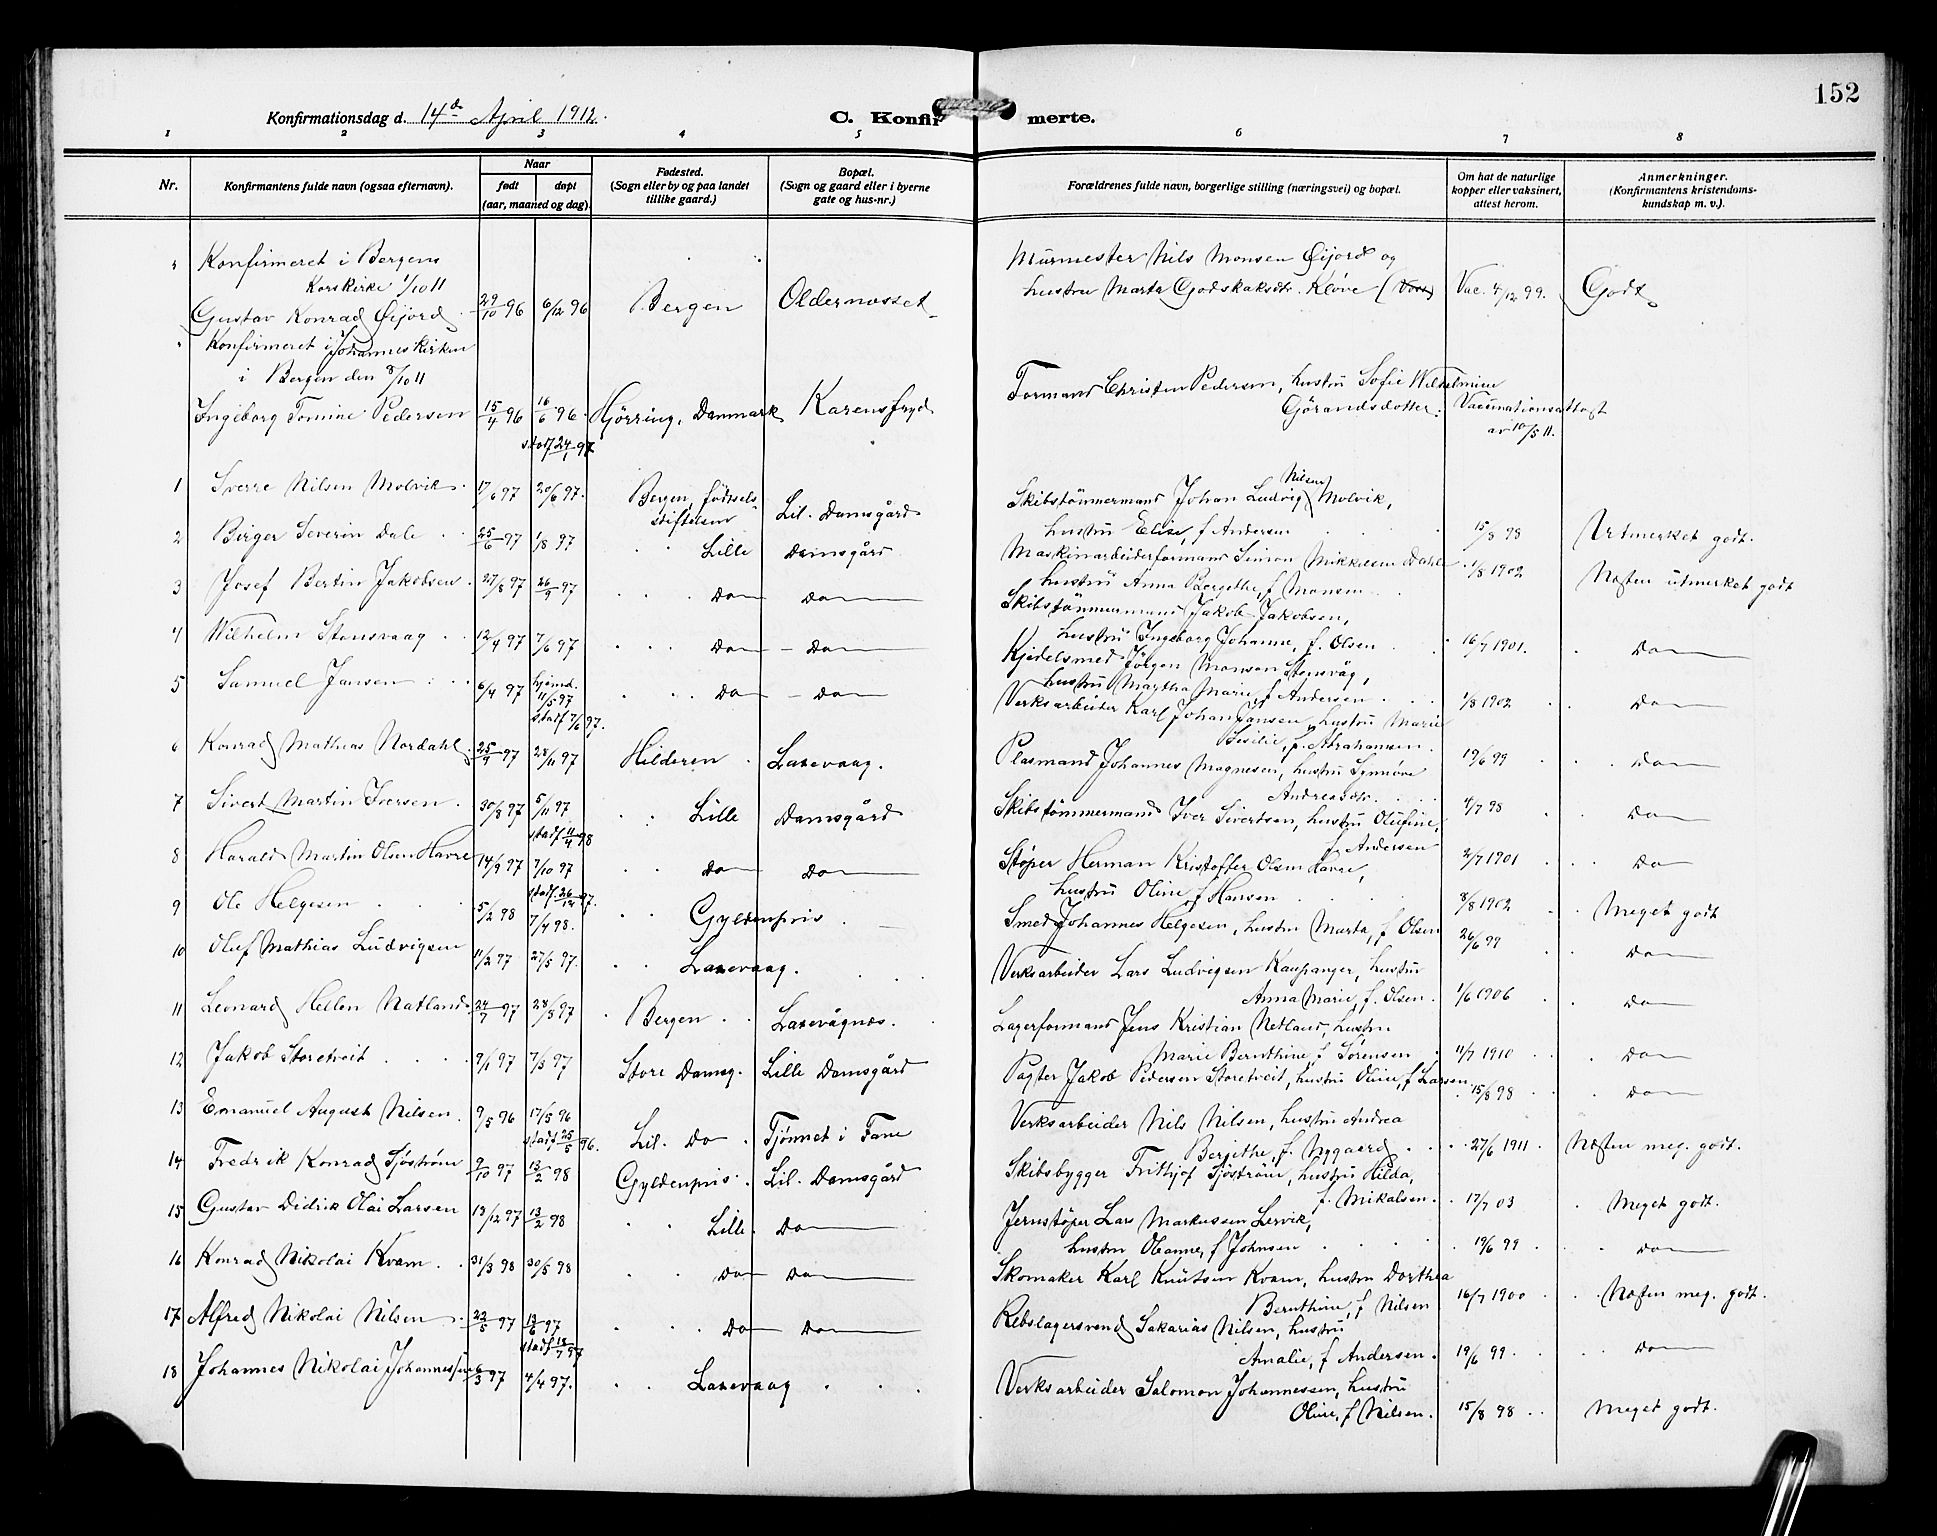 152
Konfirmationsdag d. 14d April 1912.
C. Konfirmerte.
1 2 3 4 5 6 7 8
Nr.
Konfirmantens fulde navn (ogsaa efternavn).
Naar
født døpt
(aar, maaned og dag).
Fødested.
(Sogn eller by og paa landet
tillike gaard.)
Bopæl.
(Sogn og gaard eller i byerne
gate og hus-nr.)
Forældrenes fulde navn, borgerlige stilling (næringsvei) og bopæl.
Om hat de naturlige
kopper eller vaksinert,
attest herom.
Anmerkninger.
(Konfirmantens kristendoms-
kundskap m. v.)
" Konfirmeret i Bergens
Korskirke 1/10 11
Gustav Konrad Øijord 29/10 96 6/12 96 Bergen Oldernæsset
Murmester Nils Monsen Øijord og
hustru Marta Godskaksdtr. Kløve (Voss) Vac. 4/12 99. Godt
" Konfirmeret i Johanneskirken
i Bergen den 8/10 11
Ingeborg Tomine Pedersen 15/4 96 16/6 96. Hjørring, Danmark Karensfryd
stadf 24/1 97
Formand Christen Pedersen, hustru Sofie Wilhelmine
Görandsdotter. Vaccinationsattest
av 10/5 11.
1 Sverre Nilsen Molvik. 17/6 97 20/6 97. Bergen, fødsels-
stiftelsen Lil. Damsgård
Skibstömmermand Johan Ludvig Nilsen Molvik,
hustru Elise, f Andersen 15/8 98 Utmerket godt.
2 Birger Severin Dale 25/6 97 1/8 97 Lille Damsgård
Maskinarbeiderformand Simon Mikkelsen Dahle
hustru Anna Bergithe, f Monsen 1/8 1902 Næsten utmerket godt
3 Josef Bertin Jakobsen 27/8 97 26/9 97 Do Do
Skibstömmermand Jakob Jakobsen,
hustru Ingeborg Johanne, f. Olsen 16/7 1901. Do
4 Wilhelm Stensvaag 12/4 97 7/6 97 Do - Do
Kjedelsmed Jörgen Monsen Stensvåg,
hustru Martha Marie, f Andersen 1/8 1902 Do
5 Samuel Jansen 6/4 97 hjemd. 11/5 97
stadf 7/6 97. Do - Do
Verksarbeider Karl Johan Jansen, hustru Marie
Sesilie, f. Abrahamsen. 19/6 99 Do
6 Konrad Mathias Nordahl. 25/9 97 28/11 97 Hilderen Laxevaag.
Plasmand Johannes Magnesen, hustru Synnöve
Andreasdtr. 4/7 98 Do
7 Sivert Martin Iversen 30/8 97 5/11 97
stadf 11/4 98 Lille Damsgård
Skibstömmermand Iver Sivertsen, hustru Olufine,
f. Andersen 2/7 1901 Do
8 Harald Martin Olsen Havre 14/9 97 7/10 97
stadf 26/12 97. Do Do
Støper Herman Kristoffer Olsen Havre,
hustru Oline, f Hansen 8/8 1902 Meget godt
9 Ole Helgesen 5/2 98 7/4 98. Gyldenpris
Smed Johannes Helgesen, hustru Marta, f Olsen 26/6 99 Do
10 Oluf Mathias Ludvigsen 11/2 97 27/5 97. Laxevaag.
Verksarbeider Lars Ludvigsen Kaupanger, hustru
Anna Marie, f. Olsen. 1/6 1906 Do
11 Leonard Hellen Natland 24/7 97 28/8 97 Bergen Laxevågnæs.
Lagerformand Jens Kristian Netland, hustru
Marie Bernthine, f Sørensen 11/7 1910 Do
12 Jakob Storetveit 9/1 97 7/3 97 Store Damsg. Lille Damsgård
Pagter Jakob Pedersen Storetveit, hustru Oline, f Larsen 15/8 98 Do
13 Emanuel August Nilsen. 9/5 96 17/5 96
stadf 25/5 96. Lil. Do Tjönnet i Fane
Verksarbeider Nils Nilsen, hustru Andrea
Bergithe, f. Nygaard 27/6 1911 Næsten meg. godt.
14 Fredrik Konrad Sjöström 9/10 97 13/2 98 Gyldenpris Lil. Damsgård
Skibsbygger Frithjof Sjöström, hustru Hilda,
f. Mikalsen. 17/7 03 Meget godt.
15 Gustav Didrik Olai Larsen 13/12 97 13/2 98 Lille Do
Jernstøper Lars Markussen Lervik,
hustru Oleanne, f Johnsen 19/6 99 Do
16 Konrad Nikolai Kvam 31/3 98 30/5 98 Do Do
Skomaker Karl Knutsen Kvam, hustru Dorthea
Bernthine, f Nilsen 16/7 1900 Næsten meg. godt.
17 Alfred Nikolai Nilsen 22/5 97 13/6 97
stadf 13/7 97 Do Do
Rebslagersvend Sakarias Nilsen, hustru
Amalie, f Andersen. 19/6 99. Do
18 Johannes Nikolai Johannessen 6/3 97 4/4 97. Laxevaag
Verksarbeider Salomon Johannessen, hustru
Oline, f Nilsen. 15/8 98 Meget godt.